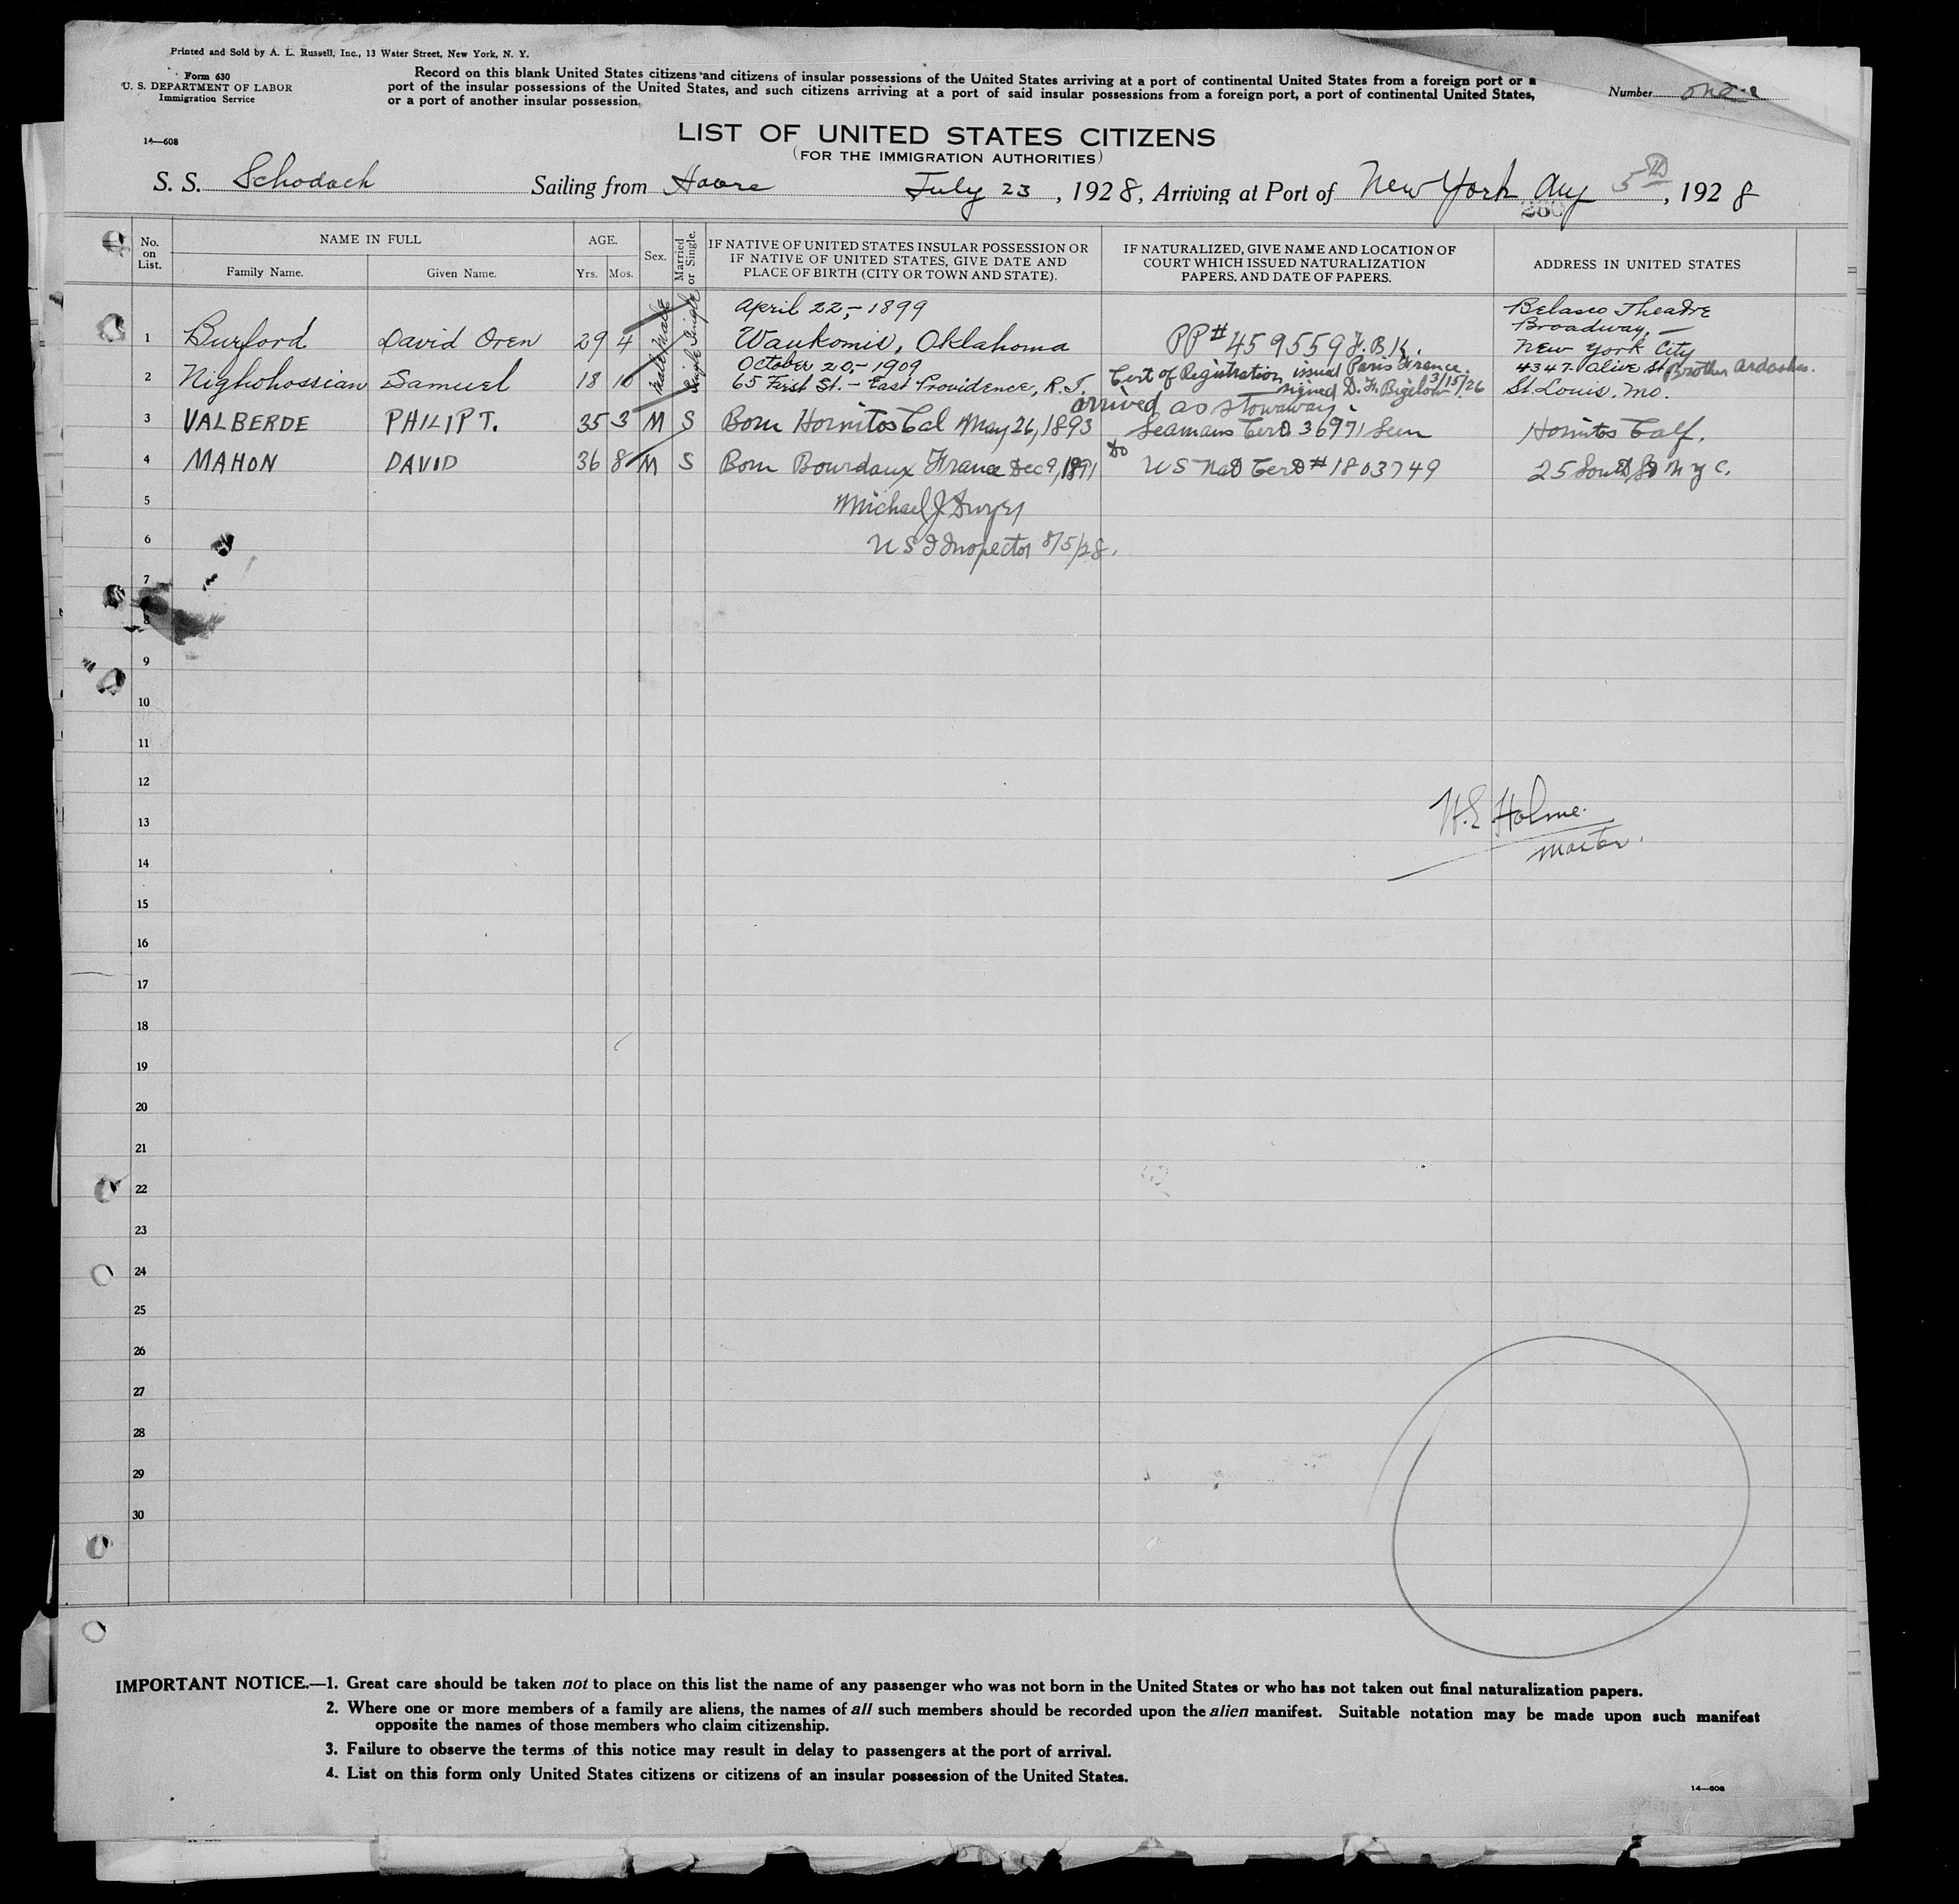 Printed and Sold by A. L. Russell, Inc., 13 Water Street, New York, N. Y.
Form 630
U. S. DEPARTMENT OF LABOR
Immigration Service
14—608
Record on this blank United States citizens and citizens of insular possessions of the United States arriving at a port of continental United States from a foreign port or a
port of the insular possessions of the United States, and such citizens arriving at a port of said insular possessions from a foreign port, a port of continental United States,
or a port of another insular possession.
Number one
LIST OF UNITED STATES CITIZENS
(FOR THE IMMIGRATION AUTHORITIES)
S. S. Schodack Sailing from Havre July 23, 1928, Arriving at Port of New York Aug 5th, 1928
No. on List.
NAME IN FULL
Family Name. Given Name.
AGE.
Yrs. Mos.
Sex.
Married or Single.
IF NATIVE OF UNITED STATES INSULAR POSSESSION OR
IF NATIVE OF UNITED STATES, GIVE DATE AND
PLACE OF BIRTH (CITY OR TOWN AND STATE).
IF NATURALIZED, GIVE NAME AND LOCATION OF
COURT WHICH ISSUED NATURALIZATION
PAPERS. AND DATE OF PAPERS.
ADDRESS IN UNITED STATES
1 Burford David Oren 29 4 Male Single April 22,- 1899 Waukomis, Oklahoma PP# 459559 F.B.K. Belasco Theatre Broadway, — New York City
2 Nighohossian Samuel 18 10 Male Single October 20,- 1909 65 First St. - East Providence, R.I. Cert of Registration issued Paris France. signed D. F. Bigelow 3/15/26 4347 Olive St Brother Ardashes. St. Louis. Mo.
arrived as stowaway.
3 VALBERDE PHILIP T. 35 3 M S Born Hornitos Cal May 26, 1893 Seamans Cert 36971 Seen Hornitos Calf.
4 MAHON DAVID 36 8 M S Born Bourdaux France Dec 9, 1891 Do US Nat Cert # 1803749 25 South St N Y C.
5 Michael J. Dwyer
6 U S I Inspector 8/5/28.
7
8
9
10
11
12
13 W.E Holme.
Master.
14
15
16
17
18
19
20
21
22
23
24
25
26
27
28
29
30
IMPORTANT NOTICE.—1. Great care should be taken not to place on this list the name of any passenger who was not born in the United States or who has not taken out final naturalization papers.
2. Where one or more members of a family are aliens, the names of all such members should be recorded upon the alien manifest. Suitable notation may be made upon such manifest
opposite the names of those members who claim citizenship.
3. Failure to observe the terms of this notice may result in delay to passengers at the port of arrival.
4. List on this form only United States citizens or citizens of an insular possession of the United States.
14—608